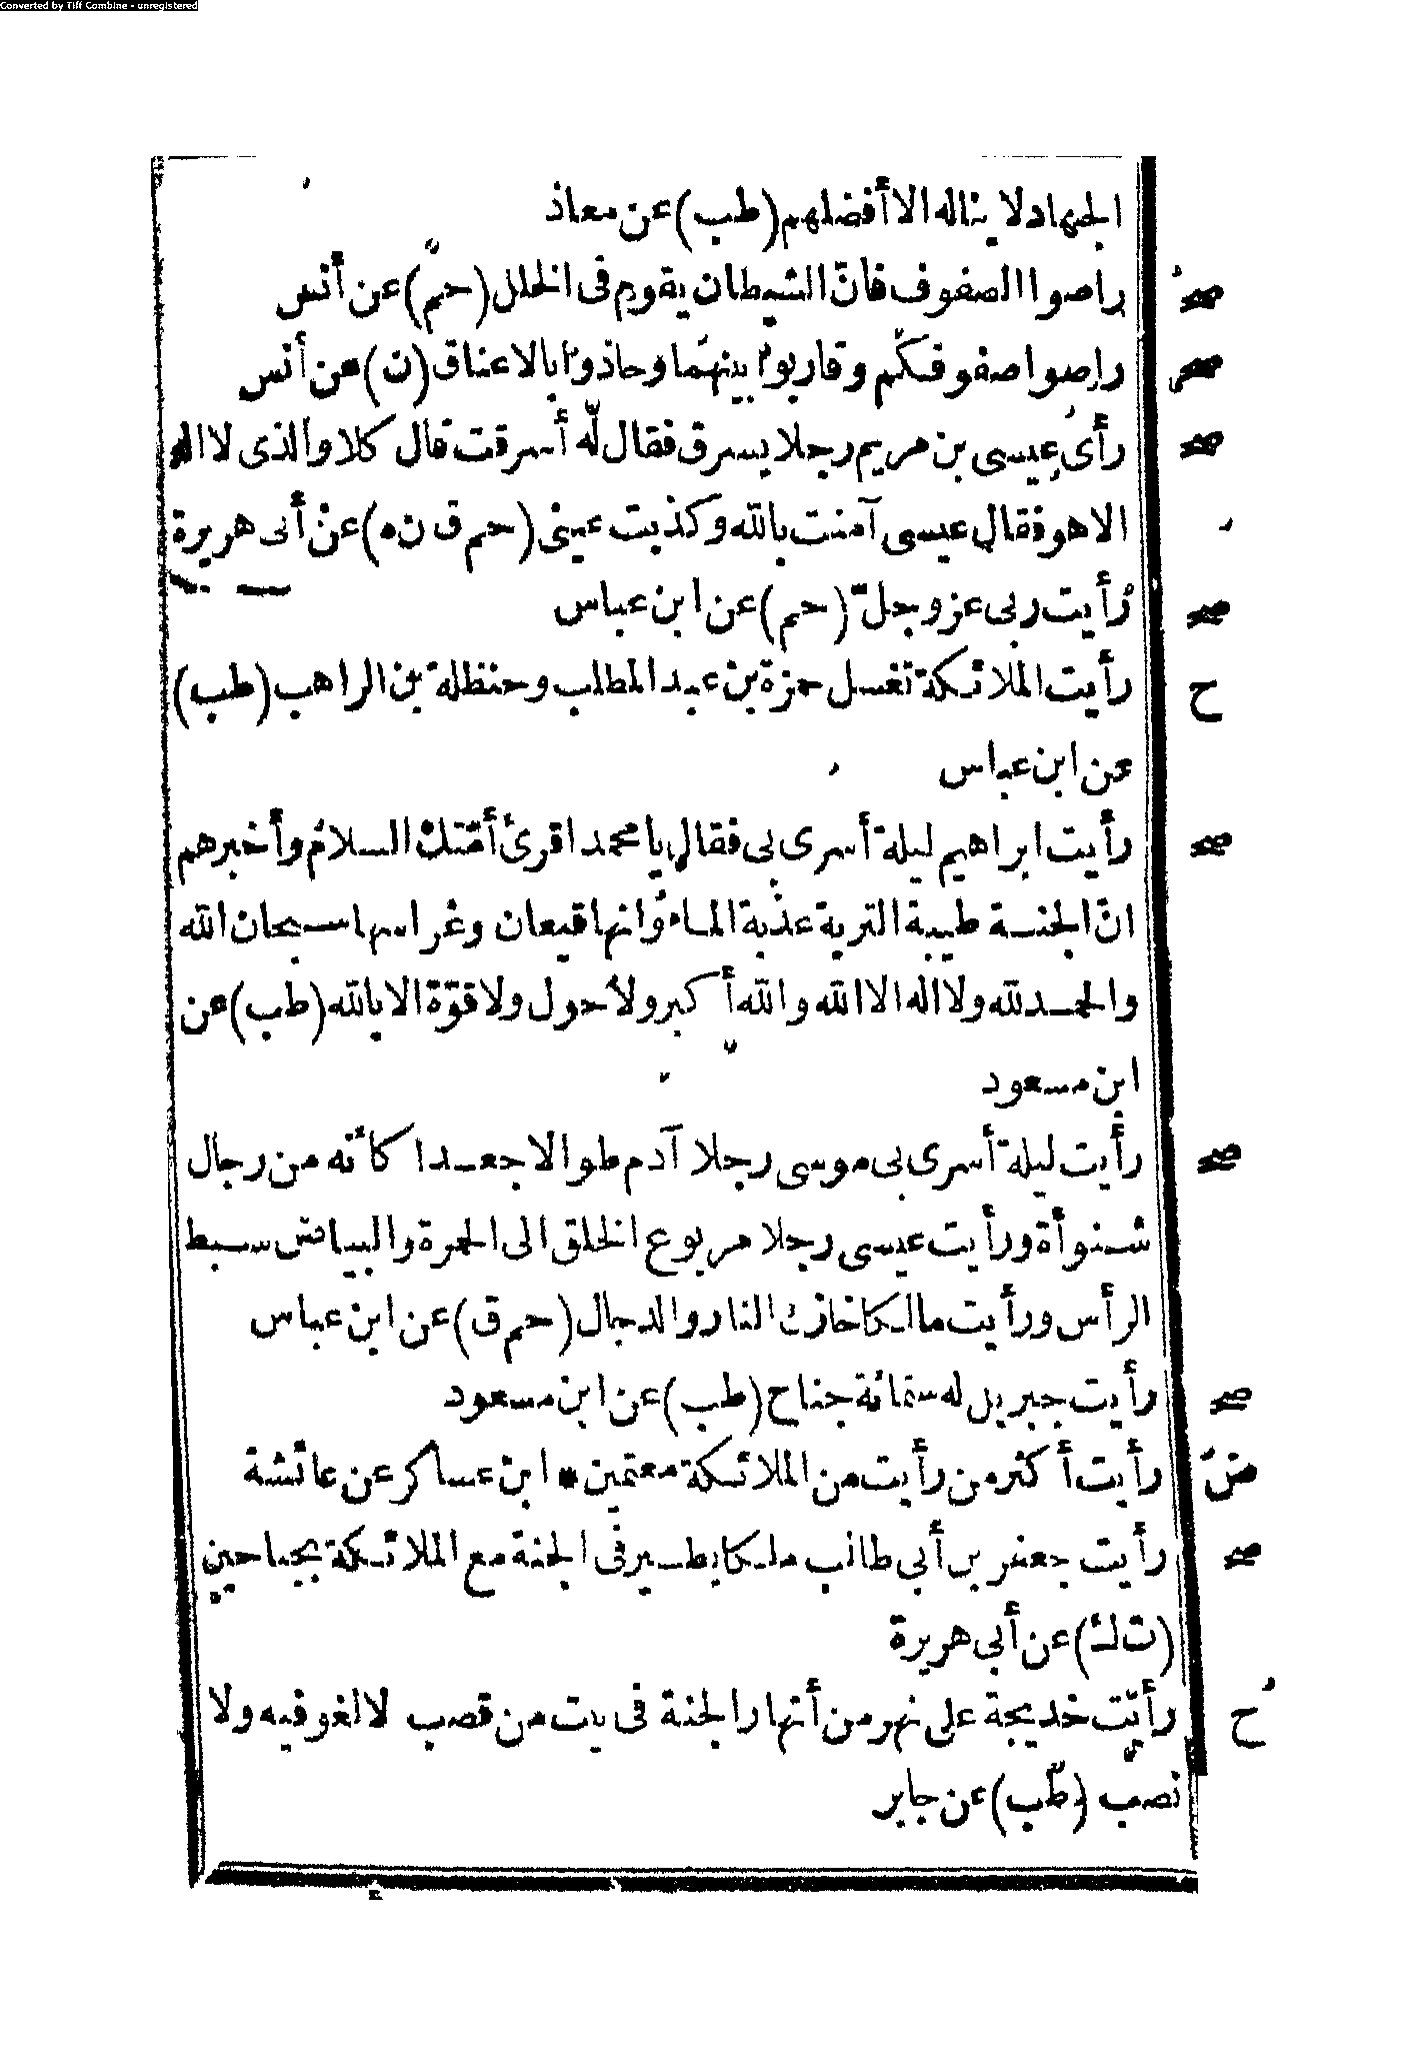 Converted by Tiff Combine - unregistered
الجهاد لا يناله الا أفضلهم (طب) عن معاذ
صح راصوا الصفوف فانّ الشيطان يقوم فى الخلل (حم) عن أنس
صح راصوا صفوفكم وقاربوا بينهما وحاذوا بالاعناق (ن) عن أنس
صح رأى عيسى بن مريم رجلا يسرق فقال له أسرقت قال كلا والذى لا اله
الا هو فقال عيسى آمنت بالله وكذبت عينى (حم ق ن ه) عن أبى هريرة
صح رأيت ربى عز وجلّ (حم) عن ابن عباس
ح رأيت الملائكة تغسل حمزة بن عبد المطلب وحنظلة بن الراهب (طب)
عن ابن عباس
صح رأيت ابراهيم ليلة أسرى بى فقال يا محمد اقرئ أمّتك السلام وأخبرهم
انّ الجنة طيبة التربة عذبة الماء وانها قيعان وغراسها سبحان الله
والحمد لله ولا اله الا الله والله أكبر ولا حول ولا قوّة الا بالله (طب) عن
ابن مسعود
صح رأيت ليلة أسرى بى موسى رجلا آدم طوالا جعدا كأنه من رجال
شنوأة ورأيت عيسى رجلا مربوع الخلق الى الحمرة والبياض سبط
الرأس ورأيت مالكا خازن النار والدجال (حم ق) عن ابن عباس
صح رأيت جبريل له ستمائة جناح (طب) عن ابن مسعود
ض رأيت أكثر من رأيت من الملائكة معتمين * ابن عساكر عن عائشة
صح رأيت جعفر بن أبي طالب ملكا يطير فى الجنة مع الملائكة بجناحين
(ت ك) عن أبى هريرة
ح رأيت خديجة على نهر من أنهار الجنة فى بيت من قصب لا لغو فيه ولا
نصب (طب) عن جابر